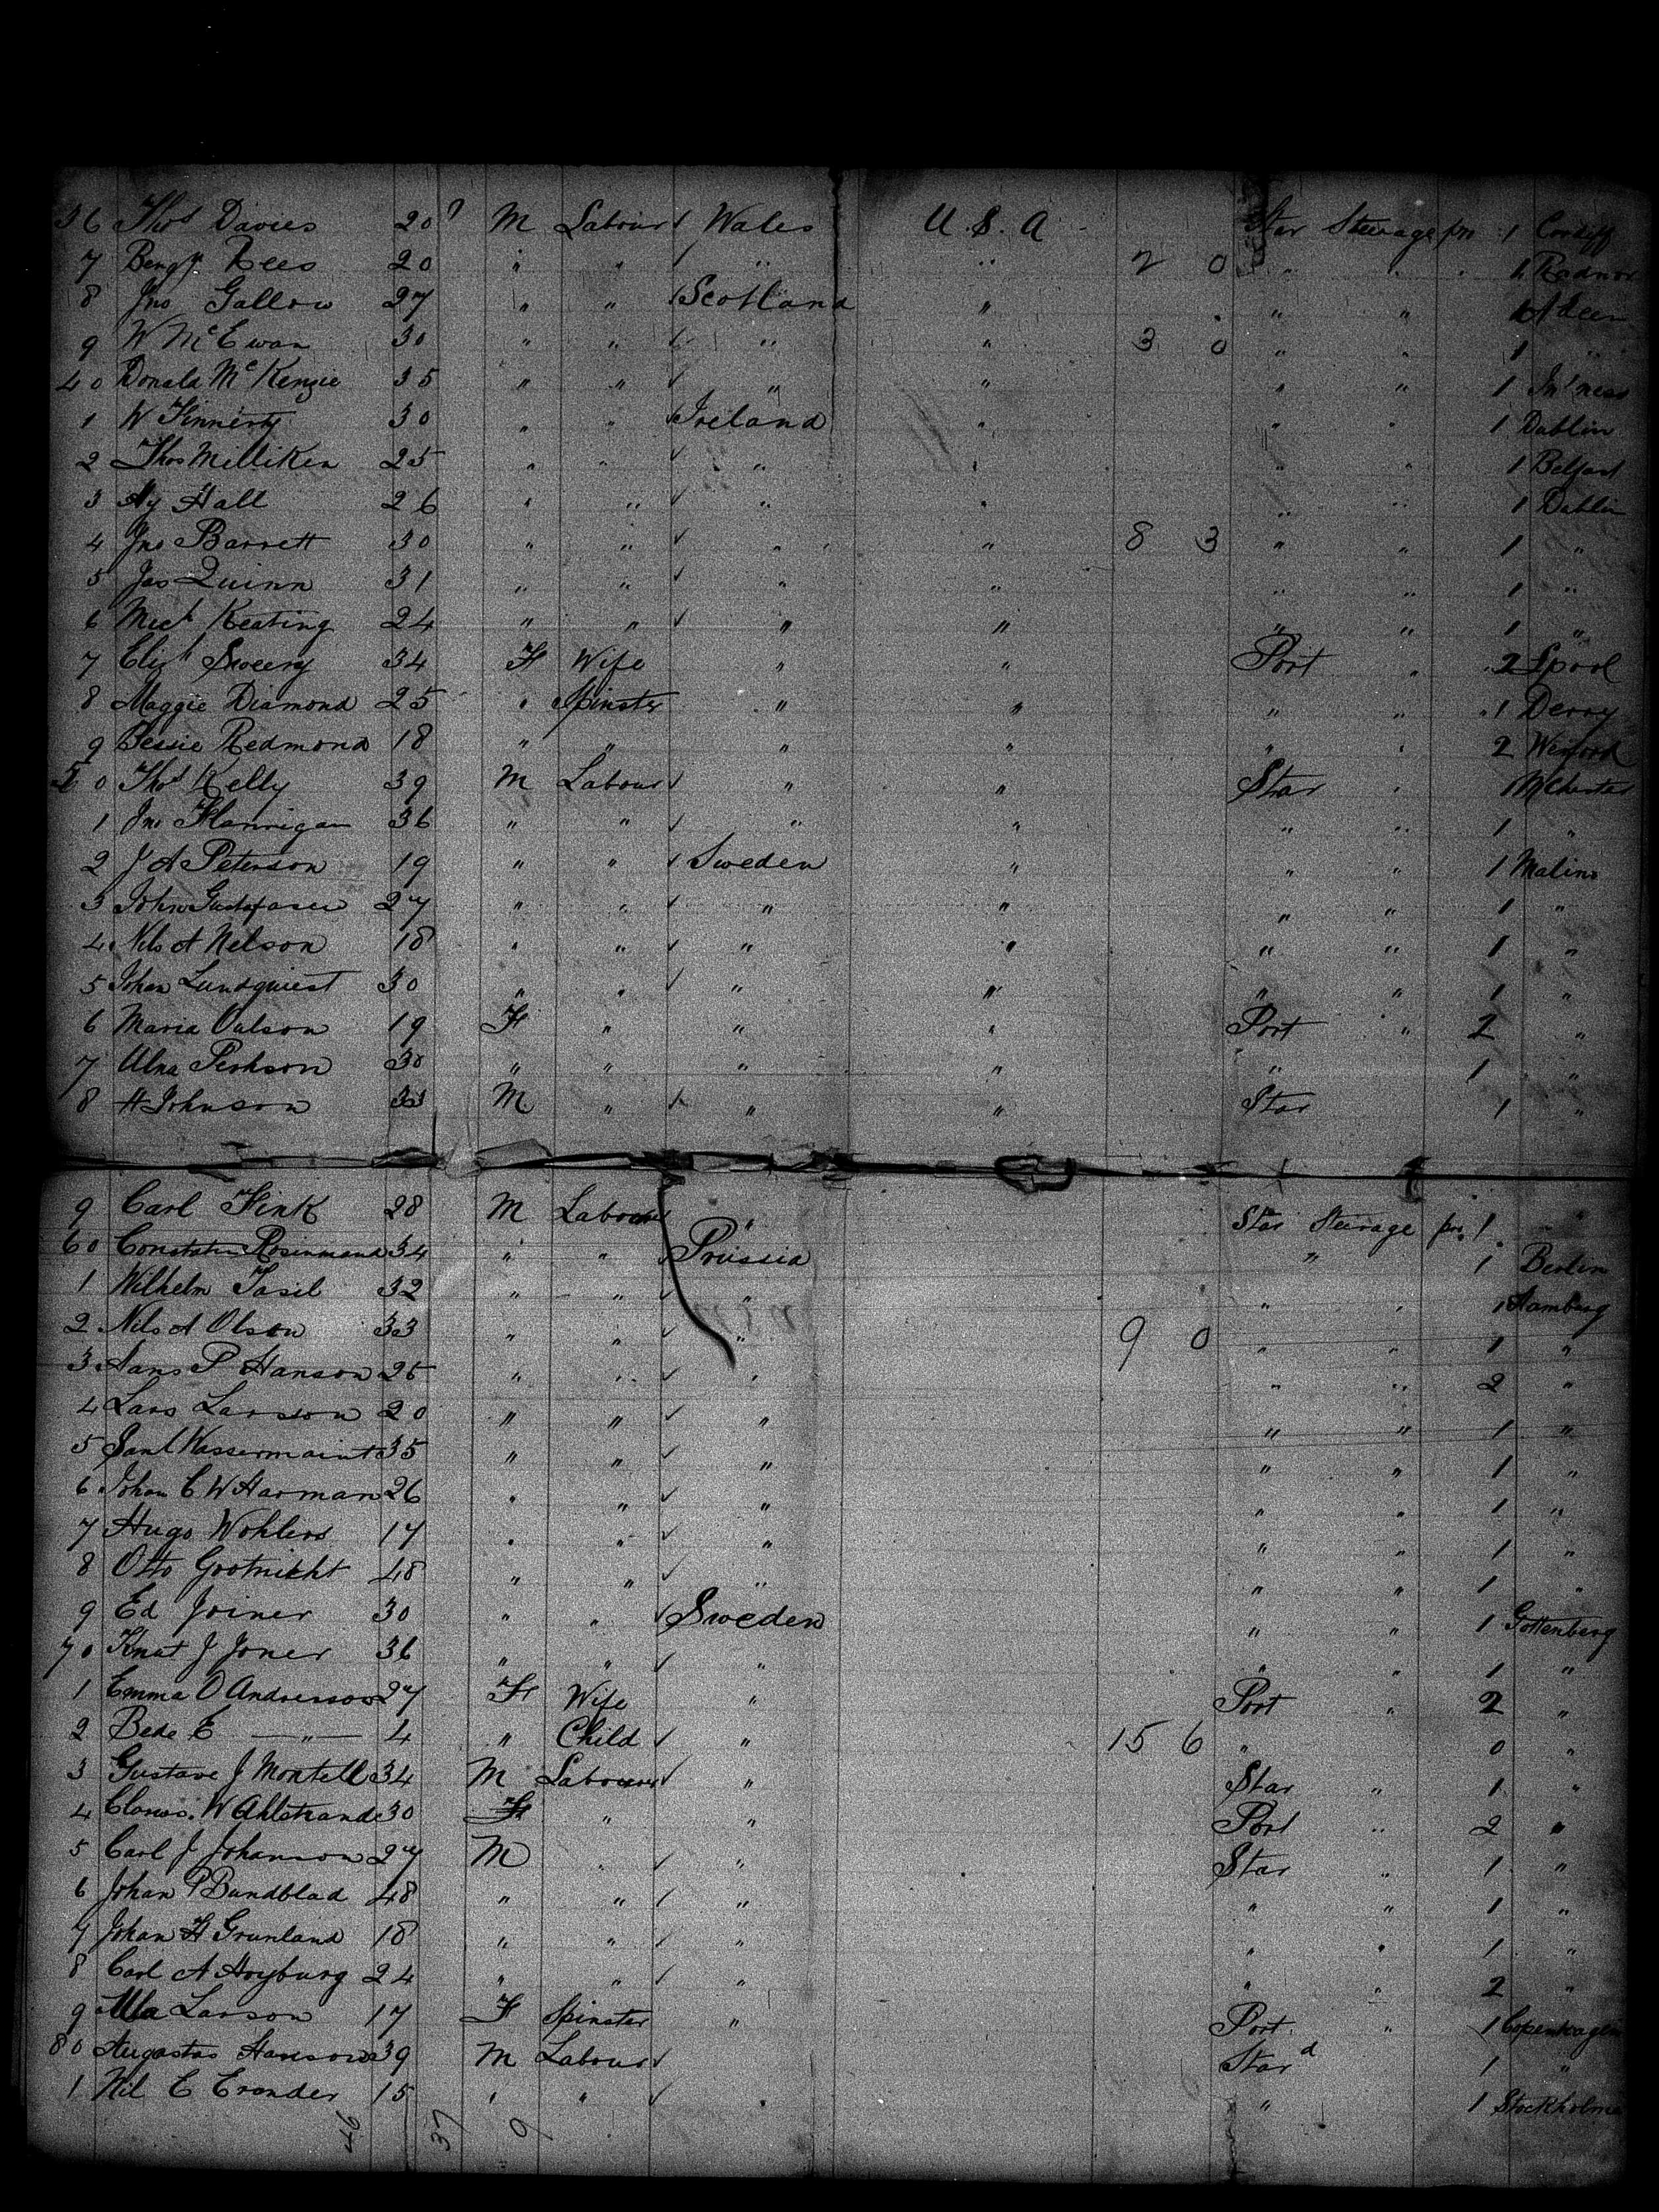 36 Thos Davies 20 M Labour Wales U.S.A Star Steerage pm 1 Cardiff
7 Benj Rees 20 " " " " 2 0 " " " 1 Radnor
8 Jno Gallow 27 " " Scotland " " " 1
9 W McEwan 30 " " " " 3 0 " " 1 "
40 Donald McKenzie 35 " " " " " " 1 In'ness
1 W Finnerty 30 " " Ireland " " " 1 Dublin
2 Thos Milliken 25 " " " " " " 1 Belfast
3 Hy Hall 26 " " " " " " 1 Dublin
4 Jno Barrett 30 " " " " 8 3 " " 1 "
5 Jas Quinn 31 " " " " " " 1 "
6 Mich Keating 24 " " " " " " 1 "
7 Elizh Sweeny 34 F Wife " " Port " 2 Lpool
8 Maggie Diamond 25 " Spinster " " " " 1 Derry
9 Bessie Redmond 18 " " " " " " 2 Wexford
50 Thos Kelly 39 M Labour " " Star " 1 MChester
1 Jno Flannigan 36 " " " " " " 1 "
2 J A Peterson 19 " " Sweden " " " 1 Malmo
3 John Gustafsen 27 " " " " " " 1 "
4 Nils A Nelson 18 " " " " " " 1 "
5 Johan Lundquiest 30 " " " " " " 1 "
6 Maria Oulson 19 F " " " Port " 2 "
7 Alna Perhson 30 " " " " " 1 "
8 H Johnson 33 M " " " Star 1 "
9 Carl Fink 28 M Labour " Star Steerage pm 1 "
60 Constatin Rosinmand 34 " " Prussia " 1 Berlin
1 Wilhelm Tasil 32 " " " " " 1 Hamburg
2 Nils A Olson 33 " " " 9 0 " " 1 "
3 Hans P Hanson 25 " " " " " 2 "
4 Lars Larson 20 " " " " " 1 "
5 Wassermaint 35 " " " " " 1 "
6 Johan C W Harman 26 " " " " " 1 "
7 Hugo Wohlers 17 " " " " " 1 "
8 Otto Grotnicht 48 " " " " " 1 "
9 Ed Joiner 30 " " Sweden " " 1 Gottenberg
70 Knut J Joner 36 " " " " " 1 "
1 Emma O Anderssoo 27 F Wife " Port " 2 "
2 Bede E — " — 4 " Child " 15 6 " 0 "
3 Gustave J Montell 34 M Labourer " Star " 1 "
4 W Ahlstrand 30 F " " Port " 2 "
5 Carl J Johanson 27 M " " Star " 1 "
6 Johan P Bundblad 48 " " " " " 1 "
7 Johan H Grunland 18 " " " " " 1 "
8 Carl A Hoyburg 24 " " " " " 2 "
9 Larson 17 F Spinster " Port " 1 Copenhagen
80 Augustas Hanson 39 M Labour Stard 1 "
1 Nil C Cronder 15 " " " " 1 Stockholme
46 37 9